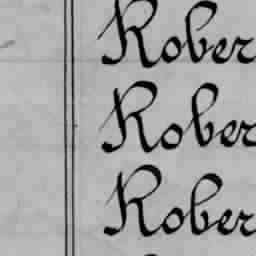 Rober
Rober
Rober